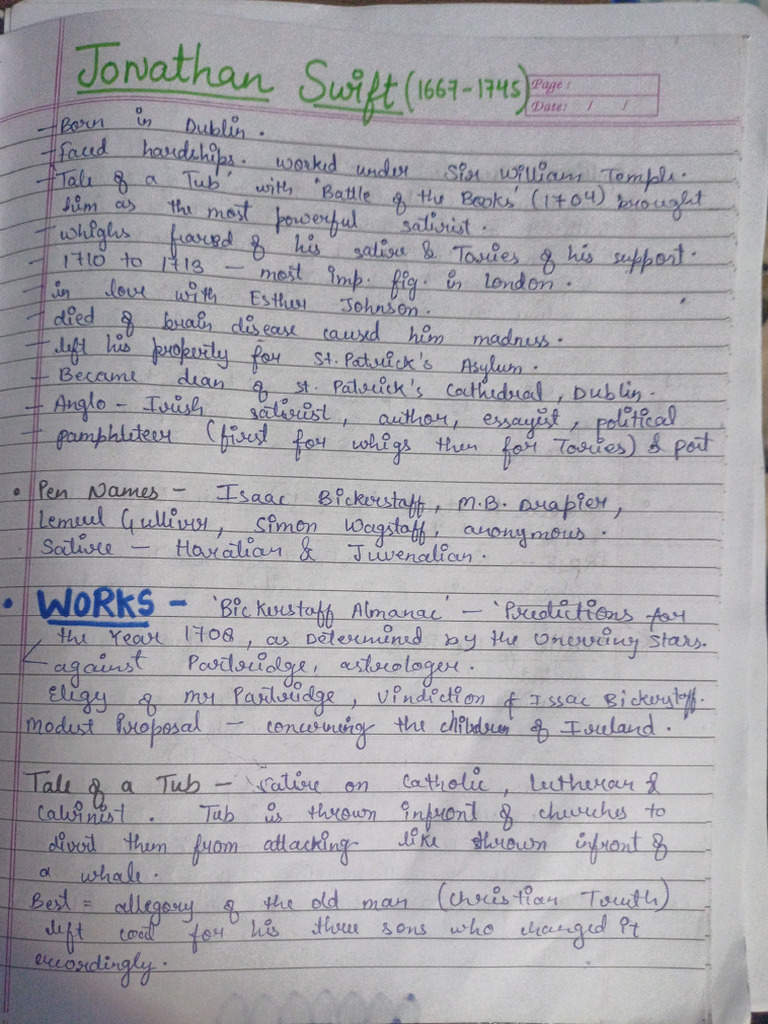 Jonathan Swift (1667-1745)
Page:
Date: / /
- Born in Dublin.
- Faced hardships. worked under Sir William Temple.
- 'Tale of a Tub' with 'Battle of the Books' (1704) brought
him as the most powerful satirist.
- whighs feared of his satire & Tories of his support.
- 1710 to 1713 - most imp. fig. in London.
- in love with Esther Johnson.
- died of brain disease caused him madness.
- left his property for St. Patrick's Asylum.
- Became dean of St. Patrick's Cathedral, Dublin.
- Anglo-Irish satirist, author, essayist, political
- pamphleteer (first for whigs then for Tories) & poet
• Pen Names - Isaac Bickerstaff, M.B. Drapier,
Lemuel Gulliver, Simon Wagstaff, anonymous.
Satire - Horatian & Juvenalian.
• WORKS - 'Bickerstaff Almanac' - 'Predictions for
the Year 1708, as Determined by the Unerring Stars.
against Partridge, astrologer.
Elegy of Mr Partridge, Vindiction of Issac Bickerstaff.
Modest Proposal - concerning the children of Ireland.
Tale of a Tub - Satire on Catholic, Lutheran &
Calvinist. Tub is thrown infront of churches to
divert them from attacking like thrown infront of
a whale.
Best = allegory of the old man (Christian Truth)
left coat for his three sons who changed it
accordingly.